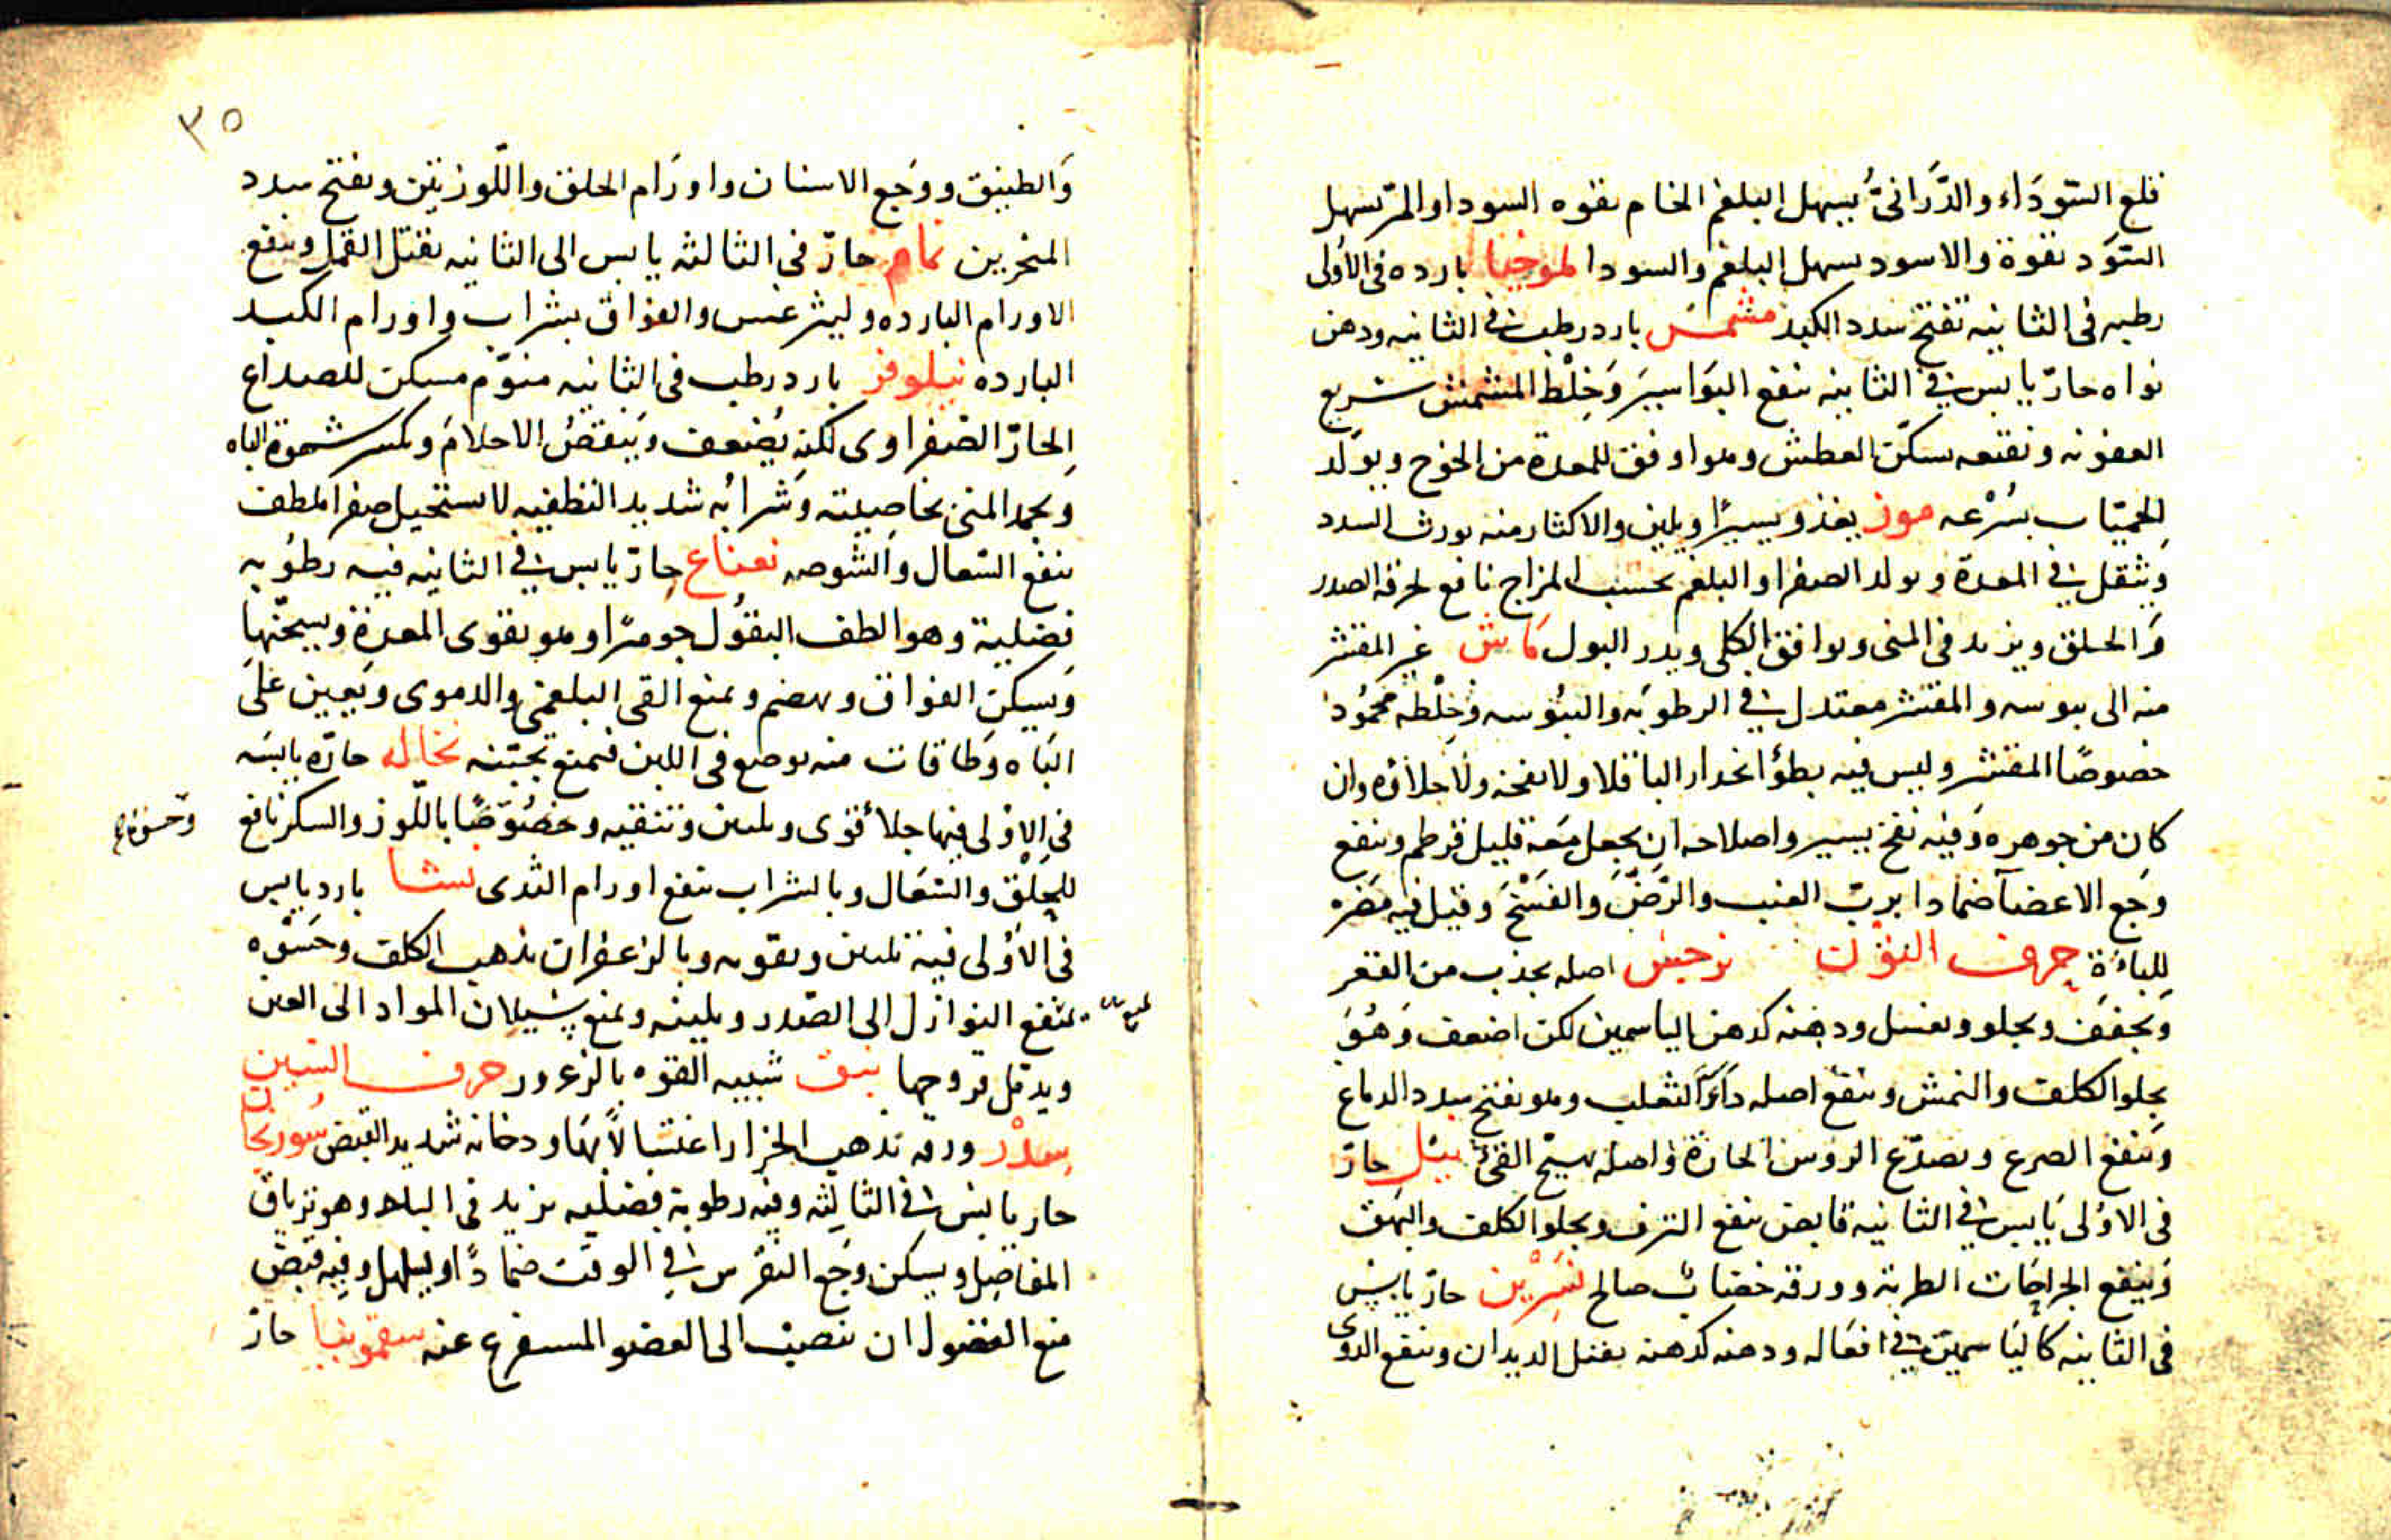 قلع السوداء والدرانى يسهل البلغم الخام بقوه السودا والمر تسهل
السود بقوة والاسود يسهل البلغم والسودا لموخيا بارده فى الاولى
رطبه فى الثانيه تفتح سدد الكبد مشمش بارد رطب فى الثانيه ودهن
نواه حار يابس فى الثانيه ينفع البواسير وخلط المشمش سريع
العفونه ونقعه يسكن العطش وهو اوفق للمعدة من الخوخ ويولد
الحميات بسرعه موز يغذو يسيرا ويلين والاكثار منه يورث السدد
ويثقل فى المعدة ويولد الصفرا والبلغم بحسب المزاج نافع لحرقه الصدر
والحلق ويزيد فى المنى ويوافق الكلى ويدر البول ماش غير المقشر
منه الى يبوسه والمقشر معتدل فى الرطوبه واليبوسه وخلطه محمود
خصوصا المقشر وليس فيه بطؤ انحدار الباقلا ولا نفخه ولا جلاؤه وان
كان من جوهره وفيه نفخ يسير واصلاحه ان يجعل معه قليل قرطم وينفع
وجع الاعضا ضمادا برب العنب والرض والفسخ وقيل فيه مضره
للباءة حرف النون نرجس اصله يجذب من القعر
ويجفف ويجلو ويغسل ودهنه كدهن الياسمين لكن اضعف وهو
يجلو الكلف والنمش وينفع اصله داء الثعلب وهو يفتح سدد الدماع
وينفع الصرع ويصدع الروس الحارة واصله يهيج القئ نيل حار
فى الاولى يابس فى الثانيه قابض ينفع النزف ويجلو الكلف والبهق
وينفع الجراحات الطريه وورقه خضاب صالح نسرين حار يابس
فى الثانيه كالياسمين فى افعاله ودهنه كدهنه يقتل الديدان وينفع الدوى
٣٥
والطنين ووجع الاسنان واورام الحلق واللوزتين ويفتح سدد
المنخرين نمام حار فى الثالثه يابس الى الثانيه يقتل القمل وينفع
الاورام البارده وليثرغس والفواق بشراب واورام الكبد
البارده نيلوفر بارد رطب فى الثانيه منوم مسكن للصداع
الحار الصفراوى لكنه يضعف وينقص الاحلام ويكسر شهوة الباه
ويجمد المنى بخاصيته وشرابه شديد التطفيه لا يستحيل صفرا ملطف
ينفع السعال والشوصه نعناع حار يابس فى الثانيه فيه رطوبه
فضلية وهو الطف البقول جوهرا وهو يقوى المعدة ويسخنها
ويسكن الفواق ويهضم ويمنع القى البلغمى والدموى ويعين على
الباه وطاقات منه يوضع فى اللبن فيمنع تجبنه نخاله حاره يابسه
فى الاولى فيها جلا قوى وتليين وتنقيه وخصوصا باللوز والسكر نافع
وخشونه
للحلق والسعال وبالشراب ينفع اورام الثدى نشا بارد يابس
فى الاولى فيه تليين وتقويه وبالزعفران يذهب الكلف وحسوه
يمنع النوازل الى الصدر ويلينه ويمنع سيلان المواد الى العين
ويدمل قروحها نبق شبيه القوه بالزعرور حرف السين
سدر ورقه يذهب الحزاز اغتسالا بها ودخانه شديد القبض سورنجان
حار يابس فى الثالثه وفيه رطوبة فضليه يزيد فى الباه وهو ترياق
المفاصل ويسكن وجع النقرس فى الوقت ضمادا ويسهل وفيه قبض
منع الفضول ان تنصب الى العضو المستفرغ عنه سقمونيا حار